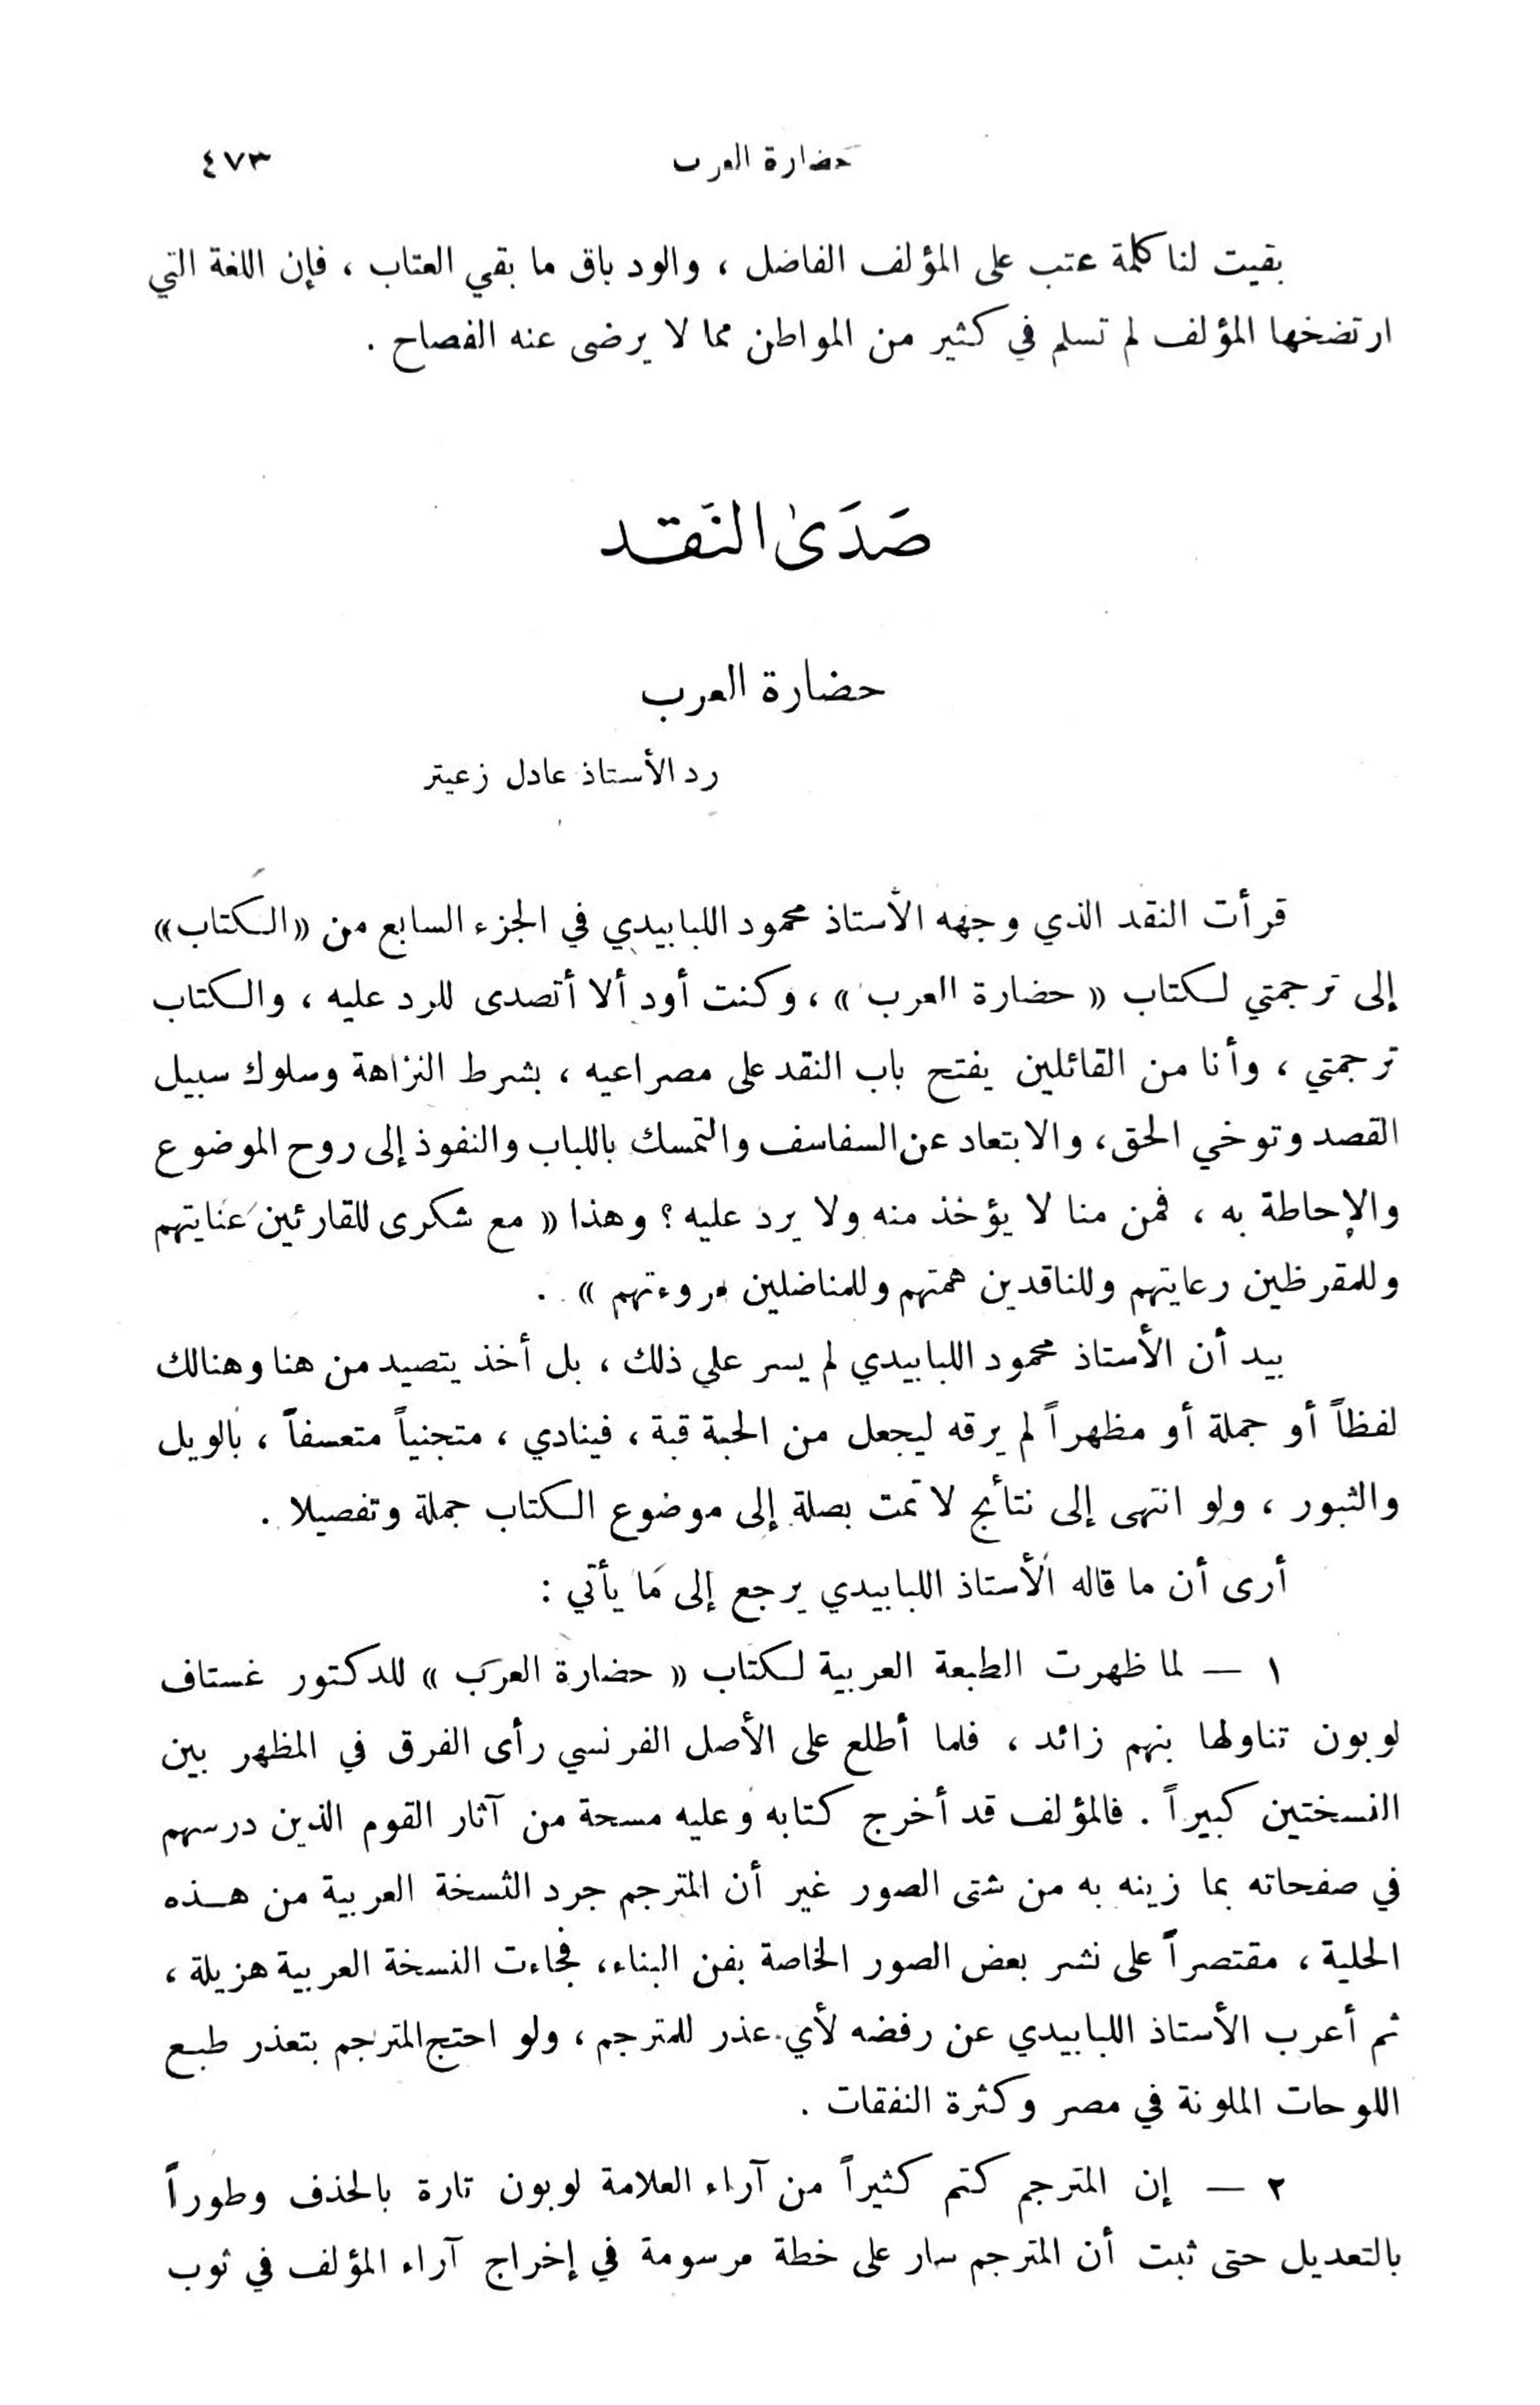 حضارة العرب ٤٧٣
بقيت لنا كلمة عتب على المؤلف الفاضل ، والود باق ما بقي العتاب ، فإن اللغة التي
ارتضخها المؤلف لم تسلم في كثير من المواطن مما لا يرضى عنه الفصاح .
صَدَىٰ النَّقد
حضارة العرب
رد الأستاذ عادل زعيتر
قرأت النقد الذي وجهه الأستاذ محمود اللبابيدي في الجزء السابع من «الكتاب»
إلى ترجمتي لكتاب « حضارة العرب » ، وكنت أود ألا أتصدى للرد عليه ، والكتاب
ترجمتي ، وأنا من القائلين يفتح باب النقد على مصراعيه ، بشرط النزاهة وسلوك سبيل
القصد وتوخي الحق، والابتعاد عن السفاسف والتمسك باللباب والنفوذ إلى روح الموضوع
والإحاطة به ، فمن منا لا يؤخذ منه ولا يرد عليه ؟ وهذا « مع شكرى للقارئين عنايتهم
وللمقرظين رعايتهم وللناقدين همتهم وللمناضلين مروءتهم » .
بيد أن الأستاذ محمود اللبابيدي لم يسر على ذلك ، بل أخذ يتصيد من هنا وهنالك
لفظاً أو جملة أو مظهراً لم يرقه ليجعل من الحبة قبة ، فينادي ، متجنياً متعسفاً ، بالويل
والثبور ، ولو انتهى إلى نتائج لا تمت بصلة إلى موضوع الكتاب جملة وتفصيلا .
أرى أن ما قاله الأستاذ اللبابيدي يرجع إلى ما يأتي :
١ — لما ظهرت الطبعة العربية لكتاب « حضارة العرب » للدكتور غستاف
لوبون تناولها بنهم زائد ، فلما أطلع على الأصل الفرنسي رأى الفرق في المظهر بين
النسختين كبيراً . فالمؤلف قد أخرج كتابه وعليه مسحة من آثار القوم الذين درسهم
في صفحاته بما زينه به من شتى الصور غير أن المترجم جرد النسخة العربية من هذه
الحلية ، مقتصراً على نشر بعض الصور الخاصة بفن البناء، فجاءت النسخة العربية هزيلة ،
ثم أعرب الأستاذ اللبابيدي عن رفضه لأي عذر للمترجم ، ولو احتج المترجم بتعذر طبع
اللوحات الملونة في مصر وكثرة النفقات .
٢ — إن المترجم كتم كثيراً من آراء العلامة لوبون تارة بالحذف وطوراً
بالتعديل حتى ثبت أن المترجم سار على خطة مرسومة في إخراج آراء المؤلف في ثوب